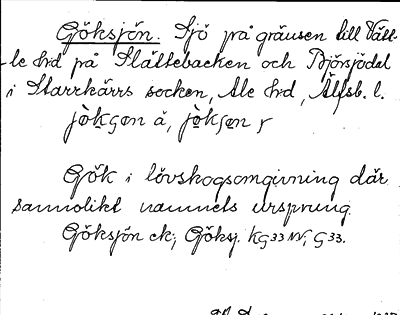 Göksjön. Sjö på gränsen till Vätt-
le hd på Slättebacken och Björsjödal
i Starrkärrs socken, Ale hd, Älfsb. l.
jòkʂɵn å, jòkʂɵn r
Gök i lövskogsomgivning där
sannolikt namnets ursprung.
Göksjön ek; Göksj. KG33 NV; G33.